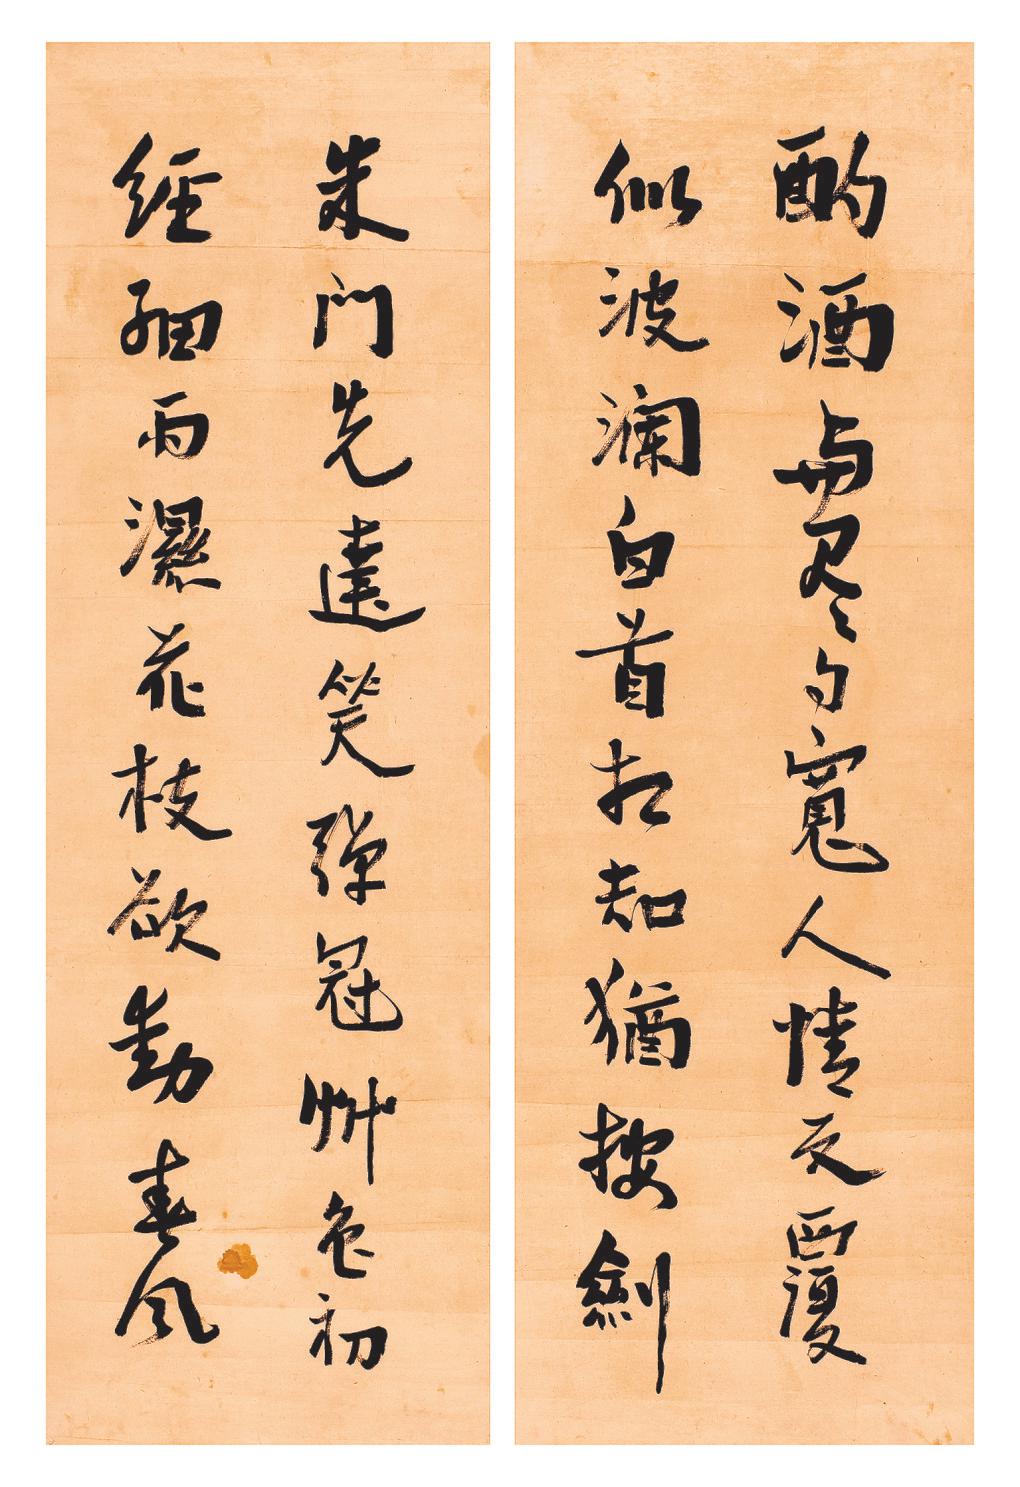 酌酒與君〻自寬人情反覆
似波瀾白首相知猶按劍
朱門先達笑彈冠艸色初
經細雨濕花枝欲動春風